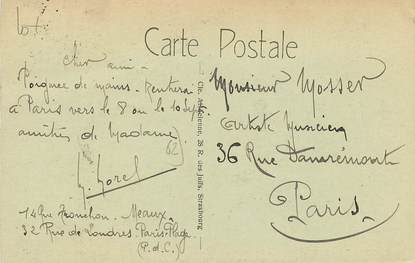 lot
Carte Postale
Cher ami -
Poignée de mains - Rentrerai
à Paris vers le 8 ou le 10 Sept
amitiés de Madame
62
14 Rue Tronchon. Meaux.
32 Rue de Londres. Paris-Plage
(P. d. C.)
Cie. Alsacienne, 26 R. des Juifs, Strasbourg
Monsieur Mosser
Artiste Musicien
36 Rue Damrémont
Paris